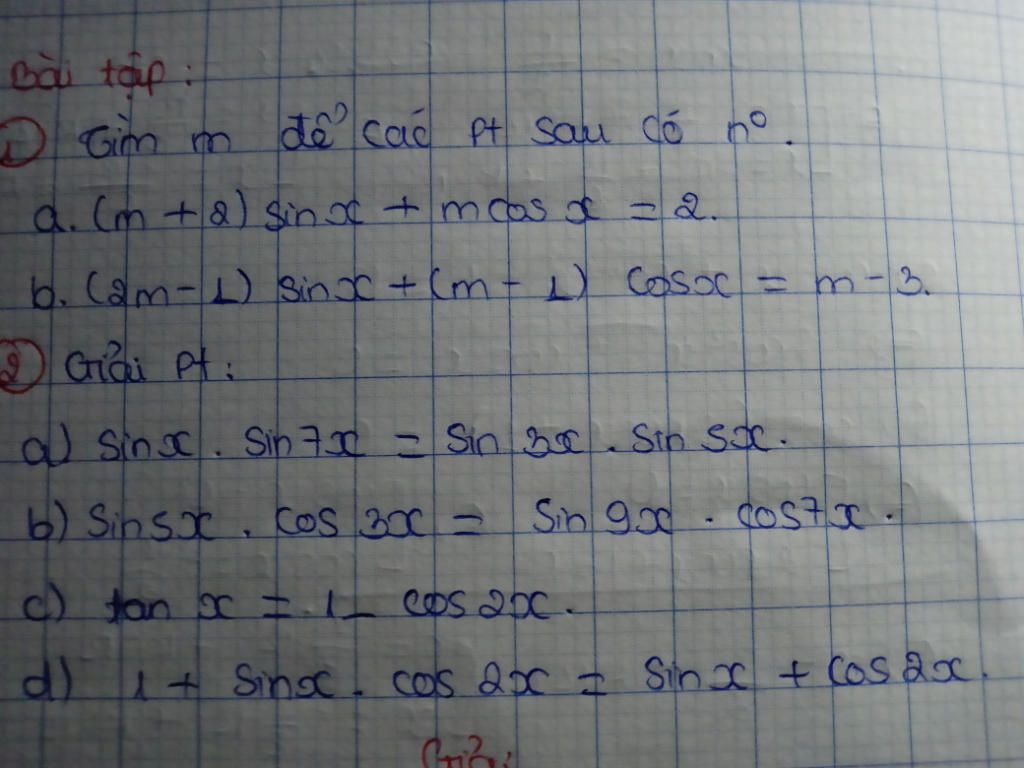 Bài tập :
① Tìm m để các pt sau có n⁰.
a. (m + 2) sin x + m cos x = 2.
b. (2m - 1) sin x + (m - 1) cos x = m - 3.
② Giải pt :
a) sin x . sin 7x = sin 3x . sin 5x.
b) sin 5x . cos 3x = sin 9x . cos 7x .
c) tan x = 1 - cos 2x.
d) 1 + sin x . cos 2x = sin x + cos 2x.
Giải: